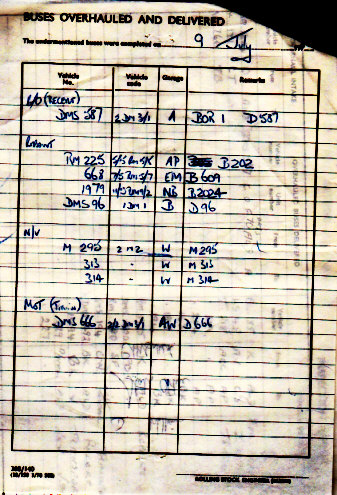 BUSES OVERHAULED AND DELIVERED
The undermentioned buses were completed on 9 July
Vehicle No. Vehicle code Garage Remarks
L/O (RECENT)
DMS 587 2 DM 3/1 A BOR 1 D 587
RM 225 5/5 RM 5/8 AP B 202
668 7/5 RM 5/7 EM B 609
1979 RM NB B 2024
DMS 96 1 DM 1 B D 96
N/V
M 295 2 M 2 W M 295
313 - W M 313
314 - W M 314
MOT
DMS 666 2/2 DM 3/1 AW D 666
ROLLING STOCK ENGINEER